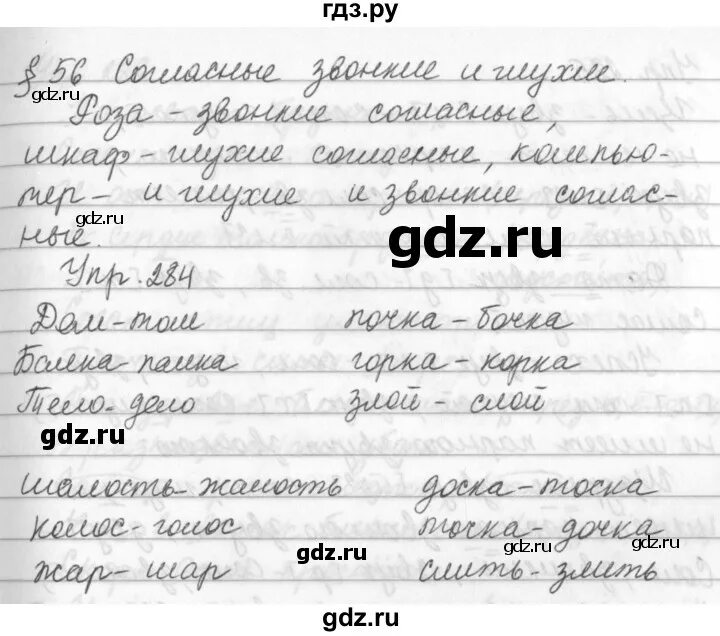 гдз.ру
§ 56 Согласные звонкие и глухие.
gdz.ru
Роза - звонкие согласные,
шкаф - глухие согласные, компью-
тер - и глухие и звонкие соглас-
gdz.ru
ные.
gdz.ru
Упр. 284
Дом - том почка - бочка
Балка - палка горка - корка
Тело - дело злой - слой
gdz.ru
шалость - жалость доска - тоска
колос - голос точка - дочка
gdz.ru gdz.ru gdz.ru
жар - шар слить - злить
gdz.ru
гдз.ру